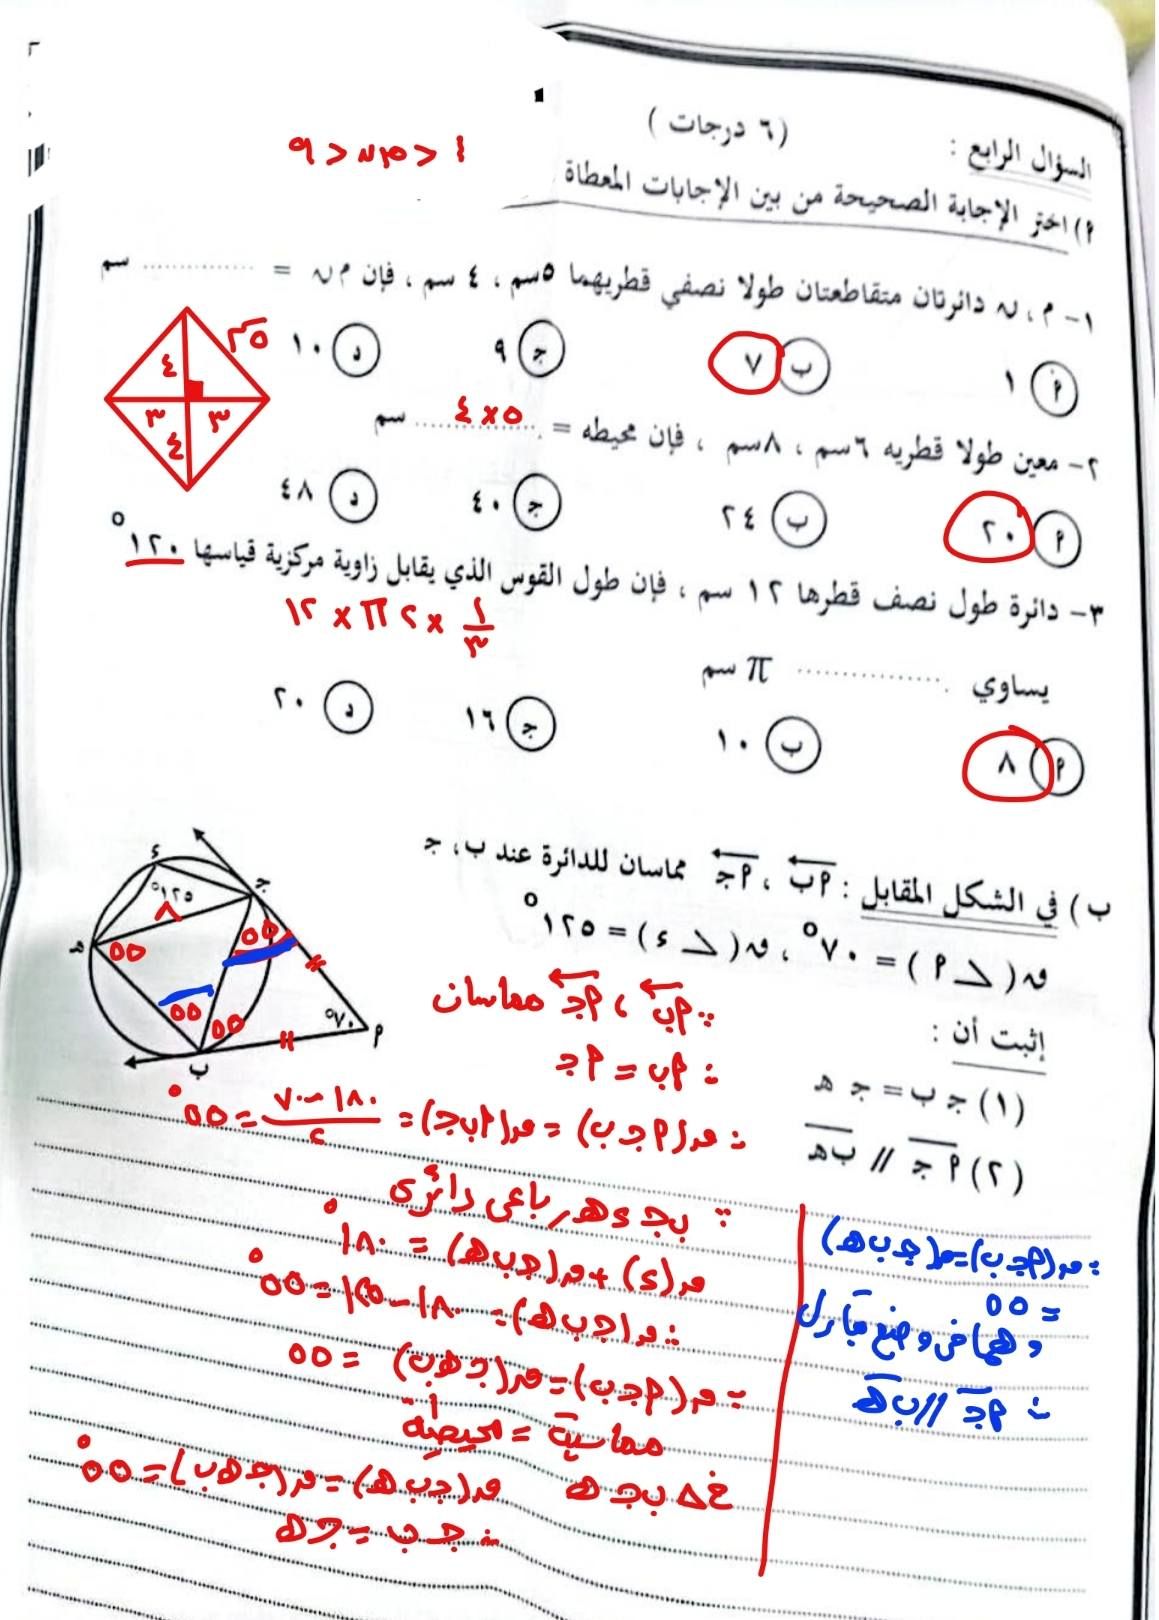 السؤال الرابع : (٦ درجات)
١ < م ن < ٩
أ) اختر الإجابة الصحيحة من بين الإجابات المعطاة
١- م ، ن دائرتان متقاطعتان طولا نصفي قطريهما ٥سم ، ٤ سم ، فإن م ن = ............ سم
أ ١ ب ٧ ج ٩ د ١٠
٢٥√
٤
٣ ٣
٤
٢- معين طولا قطريه ٦سم ، ٨سم ، فإن محيطه = ٥ × ٤ سم
أ ٢٠ ب ٢٤ ج ٤٠ د ٤٨
٣- دائرة طول نصف قطرها ١٢ سم ، فإن طول القوس الذي يقابل زاوية مركزية قياسها ١٢٠°
١/٣ × ٢ π × ١٢
يساوي ............ π سم
أ ٨ ب ١٠ ج ١٦ د ٢٠
ب) في الشكل المقابل : أب ، أج مماسان للدائرة عند ب ، ج
ق(∠ أ) = ٧٠° ، ق(∠ د) = ١٢٥°
إثبت أن :
(١) ج ب = ج هـ
(٢) أ ج // ب هـ
د
١٢٥°
ج
٨
هـ
٥٥
٥٥
٥٥
٥٥
٧٠°
أ
ب
∵ أب ، أج مماسان
∴ أب = أج
∴ ق(أ ج ب) = ق(أ ب ج) = (١٨٠ - ٧٠)/٢ = ٥٥°
∵ ب ج د هـ رباعى دائرى
ق(د) + ق(ج ب هـ) = ١٨٠°
∴ ق(ج ب هـ) = ١٨٠ - ١٢٥ = ٥٥°
∴ ق(أ ج ب) = ق(ج هـ ب) = ٥٥
مماسية = محيطية
فى ∆ ب ج هـ ق(ج ب هـ) = ق(ج هـ ب) = ٥٥°
∴ ج ب = ج هـ
∵ ق(أ ج ب) = ق(ج ب هـ)
= ٥٥
وهما فى وضع تبادل
∴ أ ج // ب هـ